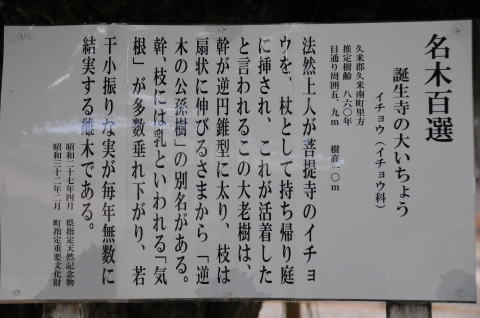 名木百選
誕生寺の大いちょう
イチョウ（イチョウ科）
久米郡久米南町里方
推定樹齢 八六〇年
目通り周囲五、九m 樹高一〇m
法然上人が菩提寺のイチョ
ウを、杖として持ち帰り庭
に挿され、これが活着した
と言われるこの大老樹は、
幹が逆円錐型に太り、枝は
扇状に伸びるさまから「逆
木の公孫樹」の別名がある。
幹、枝には乳といわれる「気
根」が多数垂れ下がり、若
干小振りな実が毎年無数に
結実する雌木である。
昭和二十七年四月 県指定天然記念物
昭和三十二年二月 町指定重要文化財